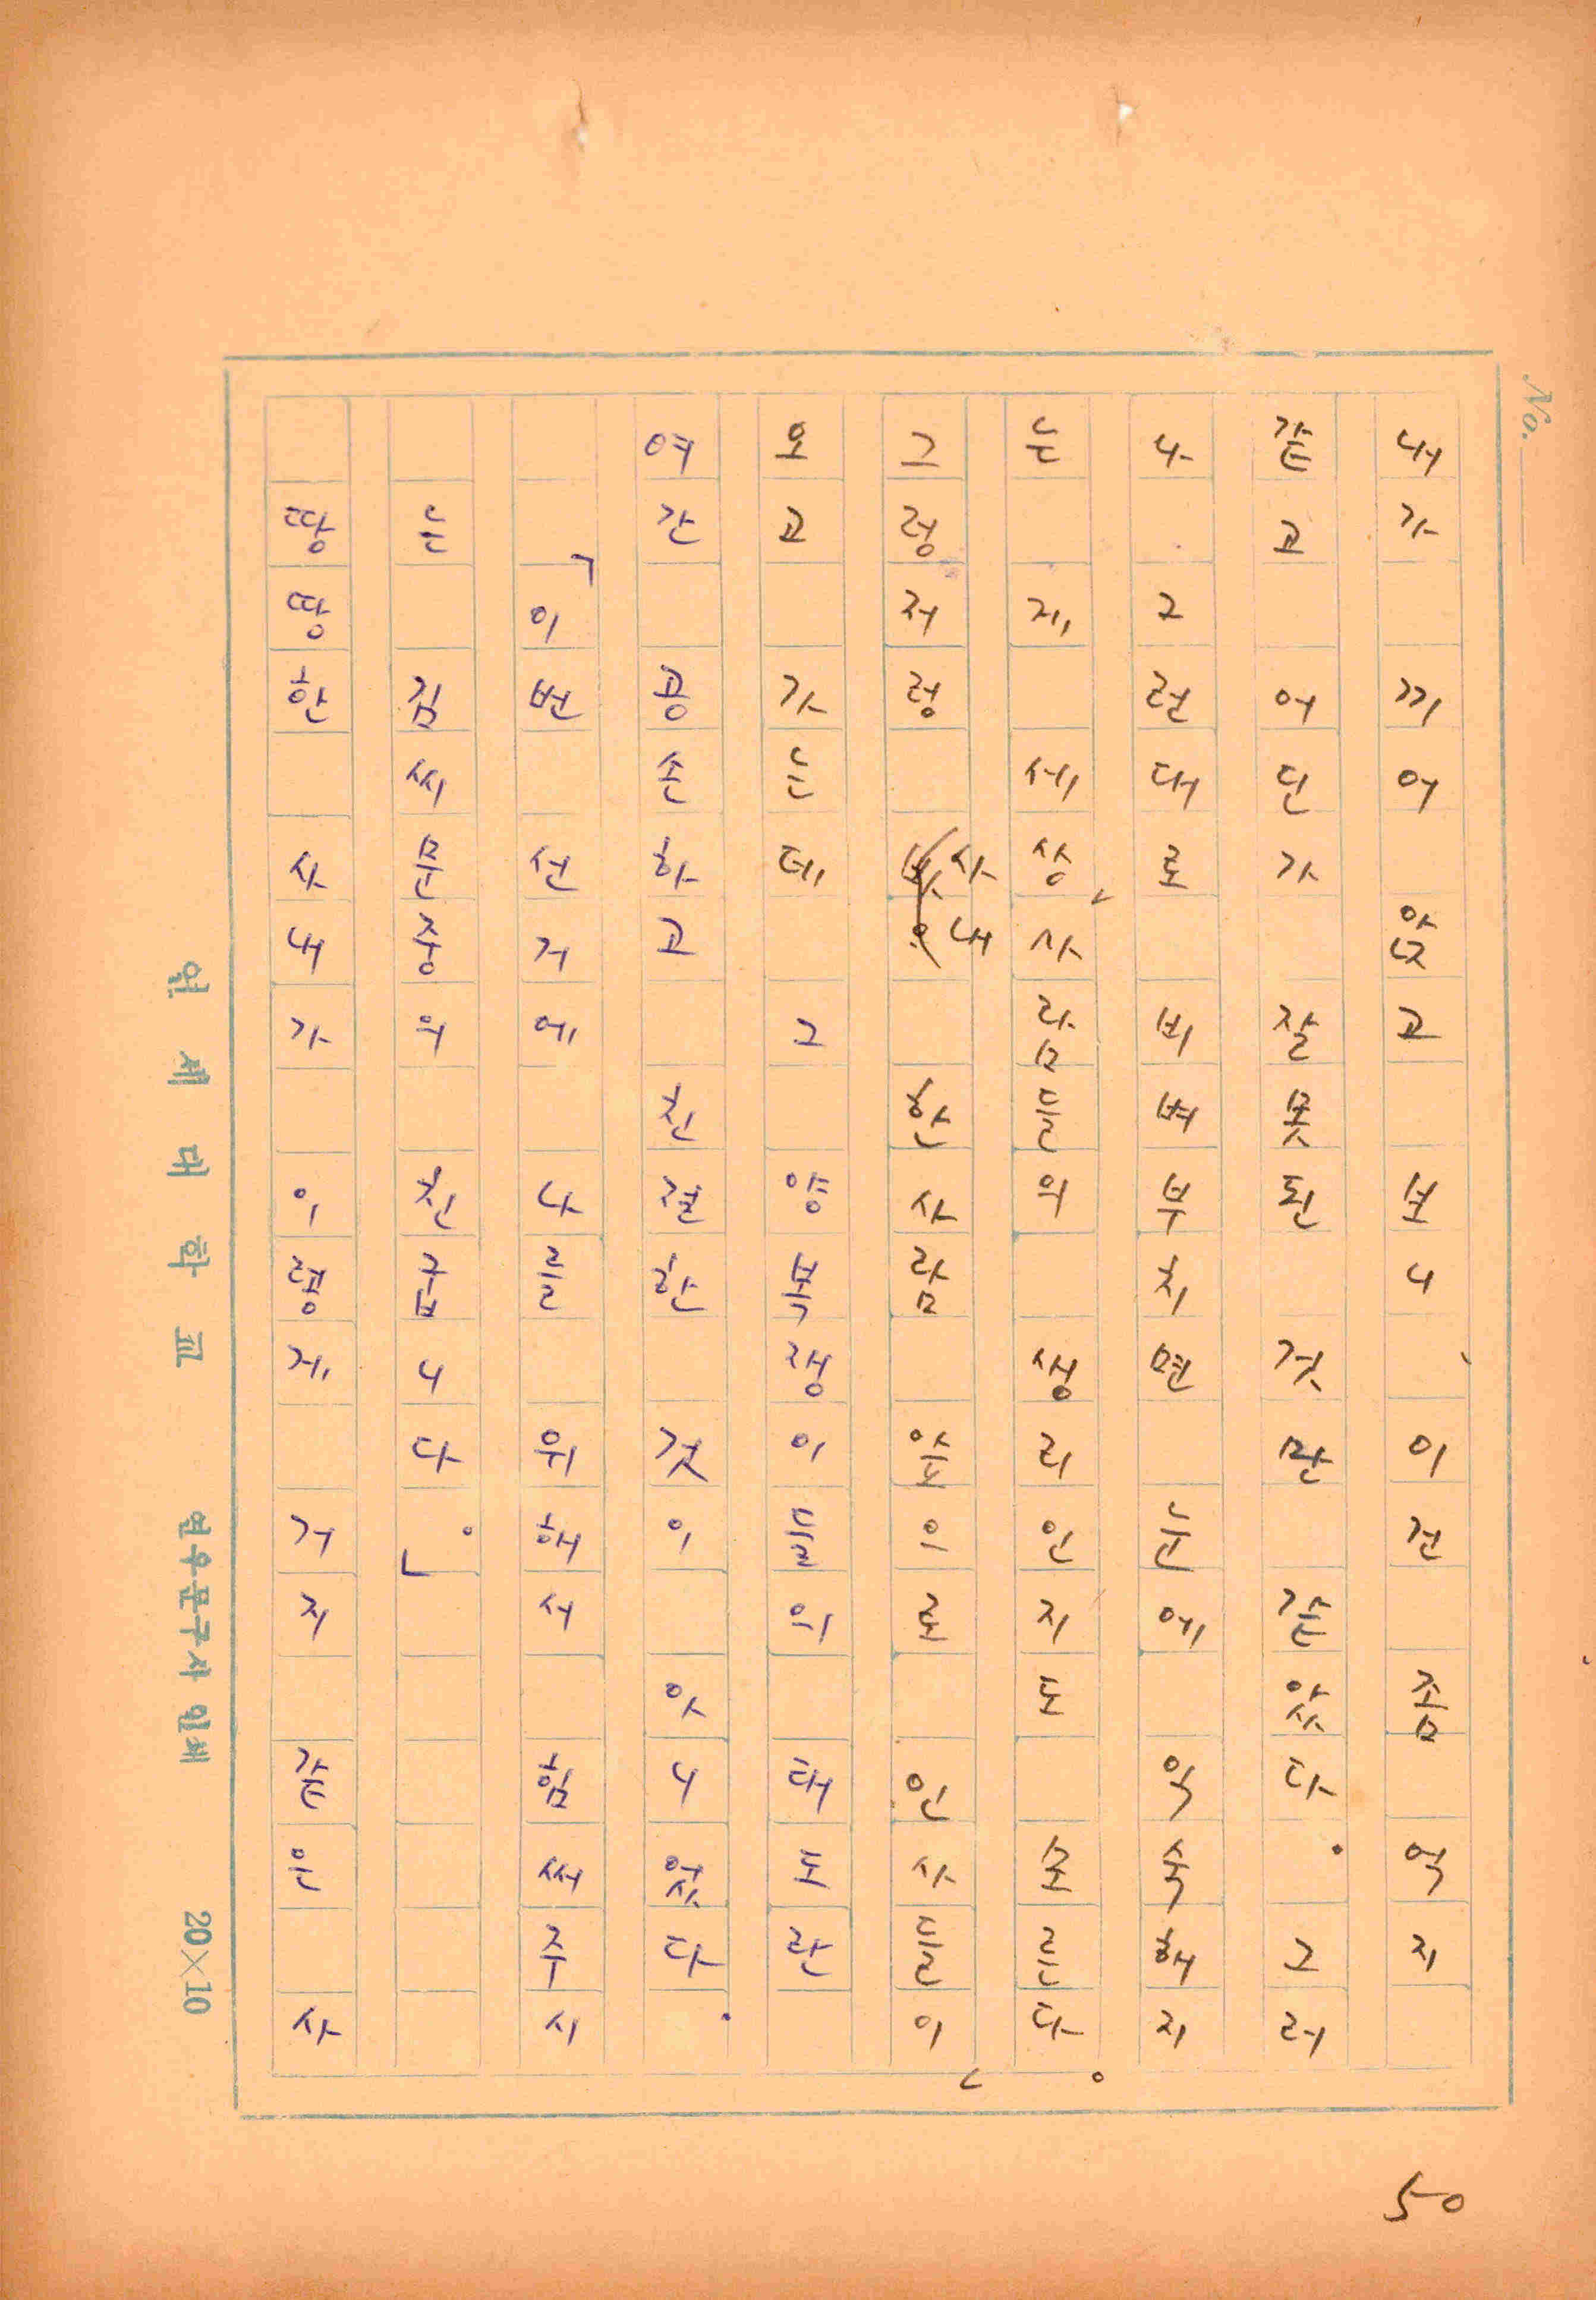 No.
내가 끼어 앉고 보니、이건 좀 억지
같고 어딘가 잘못된 것만 같았다. 그러
나 그런대로 비벼부치면 눈에 익숙해지
는 게 세상, 사람들의 생리인지도 모른다.
그렁저렁 사내 한사람 인사들이,
오고 가는데 그 태도란
여간 공손하고 친절한 것이 아니었다.
「이번 선거에 나를 위해서 힘써주시
는 김씨문중의 친굽니다.」
땅땅한 사내가 이렇게 거지 같은 사
연세대학교 연우문구사 인쇄 20×10
50